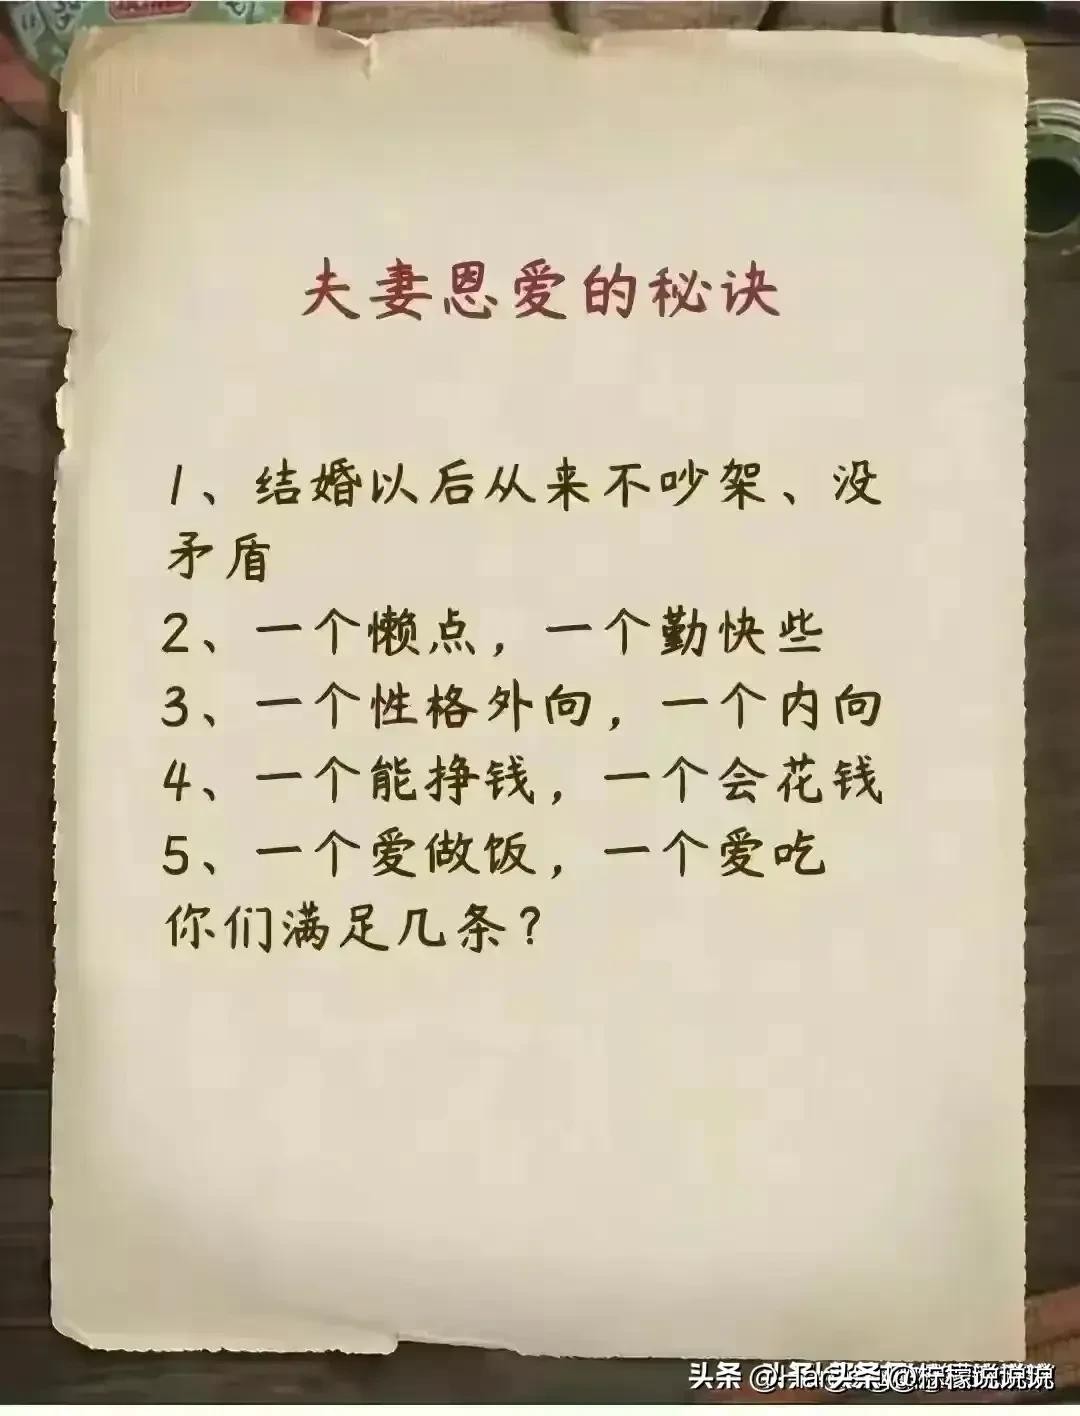 夫妻恩爱的秘诀
1、结婚以后从来不吵架、没
矛盾
2、一个懒点，一个勤快些
3、一个性格外向，一个内向
4、一个能挣钱，一个会花钱
5、一个爱做饭，一个爱吃
你们满足几条？
头条